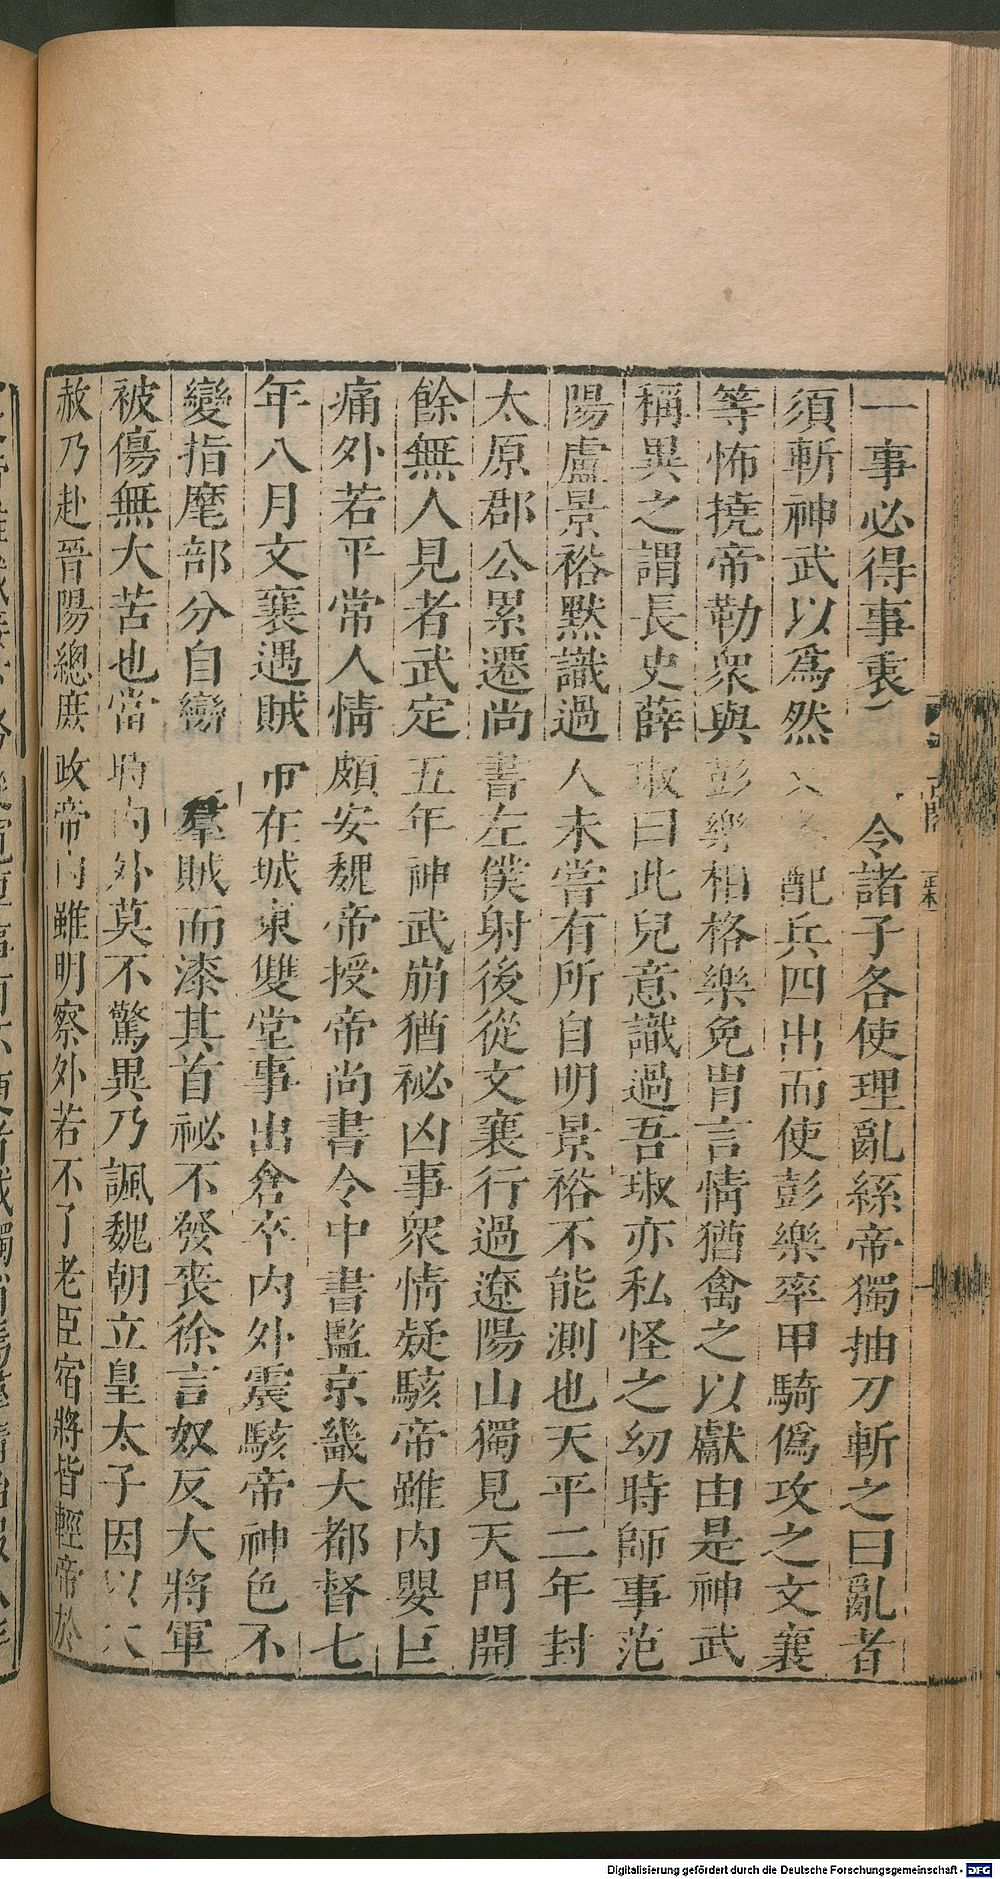 一事必得事衷　令諸子各使理亂絲帝獨抽刀斬之曰亂者
須斬神武以爲然　配兵四出而使彭樂率甲騎僞攻之文襄
等怖撓帝勒衆與彭樂相格樂免冑言情猶禽之以獻由是神武
稱異之謂長史薛琡曰此兒意識過吾琡亦私怪之幼時師事范
陽盧景裕默識過人未嘗有所自明景裕不能測也天平二年封
太原郡公累遷尚書左僕射後從文襄行過遼陽山獨見天門開
餘無人見者武定五年神武崩猶祕凶事衆情疑駭帝雖內嬰巨
痛外若平常人情頗安魏帝授帝尚書令中書監京畿大都督七
年八月文襄遇賊帀在城東雙堂事出倉卒內外震駭帝神色不
變指麾部分自臠羣賊而漆其首祕不發喪徐言奴反大將軍
被傷無大苦也當時內外莫不驚異乃諷魏朝立皇太子因以大
赦乃赴晉陽總庶政帝內雖明察外若不了老臣宿將皆輕帝於
正本
Digitalisierung gefördert durch die Deutsche Forschungsgemeinschaft - DFG